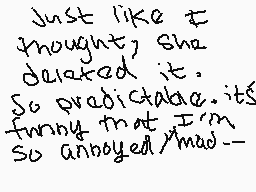 Just like I
thought, she
deleted it.
So predictable. its
funny that I'm
so annoyed/mad--